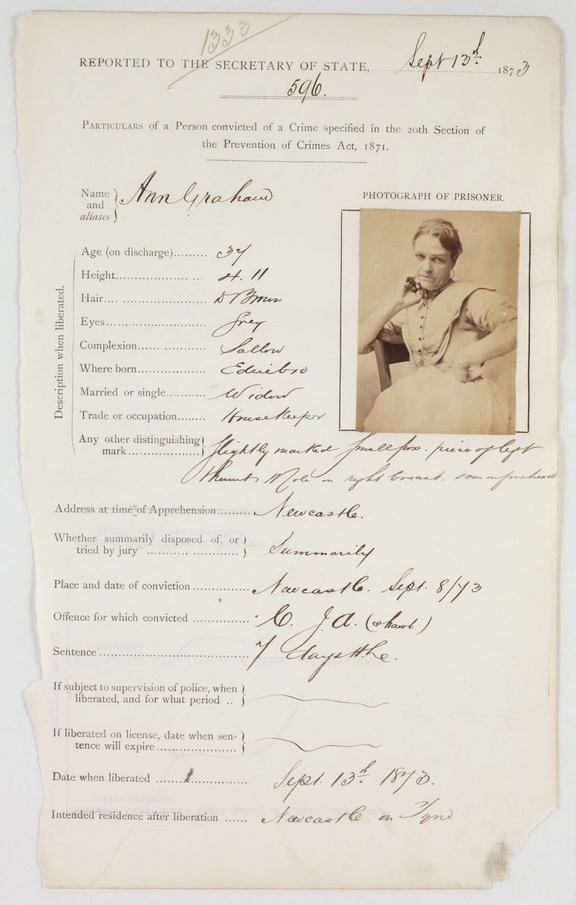 1333
REPORTED TO THE SECRETARY OF STATE, Sept 13th 1873
596.
PARTICULARS of a Person convicted of a Crime specified in the 20th Section of
the Prevention of Crimes Act, 1871.
Name and aliases } Ann Graham
PHOTOGRAPH OF PRISONER.
Description when liberated.
Age (on discharge)......... 37
Height........................ 4. 11
Hair........................... D Brown
Eyes........................... Grey
Complexion................. Sallow
Where born................. Edinbro
Married or single.......... Widow
Trade or occupation....... Housekeeper
Any other distinguishing } Slightly marked Smallpox. piece of left
mark.................. thumb Mole on right breast. scar on forehead
Address at time of Apprehension......... Newcastle.
Whether summarily disposed of, or } Summarily
tried by jury .....................
Place and date of conviction ............ Newcastle. Sept. 8/73
Offence for which convicted ............ (shawl)
Sentence ........................... 7 days
If subject to supervision of police, when }
liberated, and for what period ..
If liberated on license, date when sen- }
tence will expire.....................
Date when liberated ..................... Sept. 13th 1873.
Intended residence after liberation ...... Newcastle on Tyne